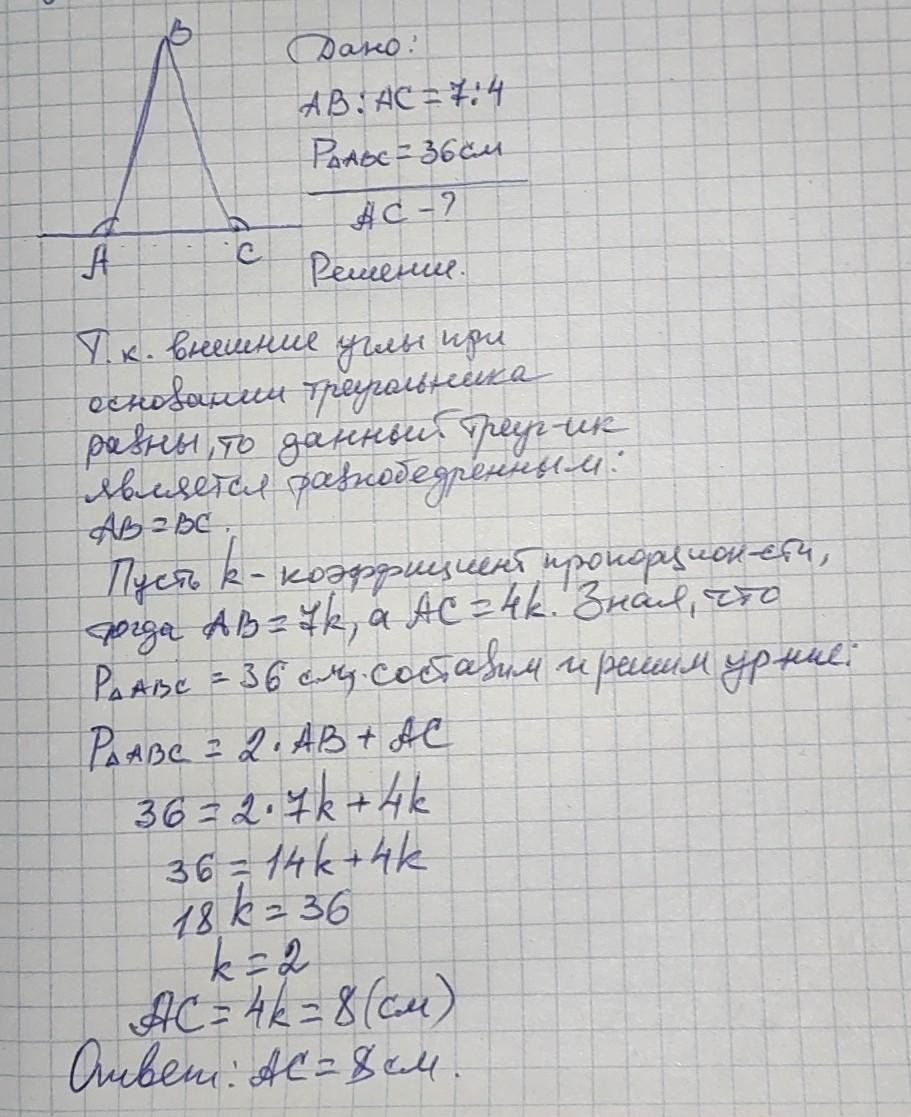 B
Дано:
AB : AC = 7:4
P△ABC = 36 см
AC - ?
A C
Решение.
Т.к. внешние углы при
основании треугольника
равны, то данный треуг-ик
является равнобедренным:
AB = BC.
Пусть k - коэффициент пропорцион-сти,
тогда AB = 7k, а AC = 4k. Зная, что
P△ABC = 36 см, составим и решим ур-ние:
P△ABC = 2·AB + AC
36 = 2·7k + 4k
36 = 14k + 4k
18k = 36
k = 2
AC = 4k = 8 (см)
Ответ: AC = 8 см.